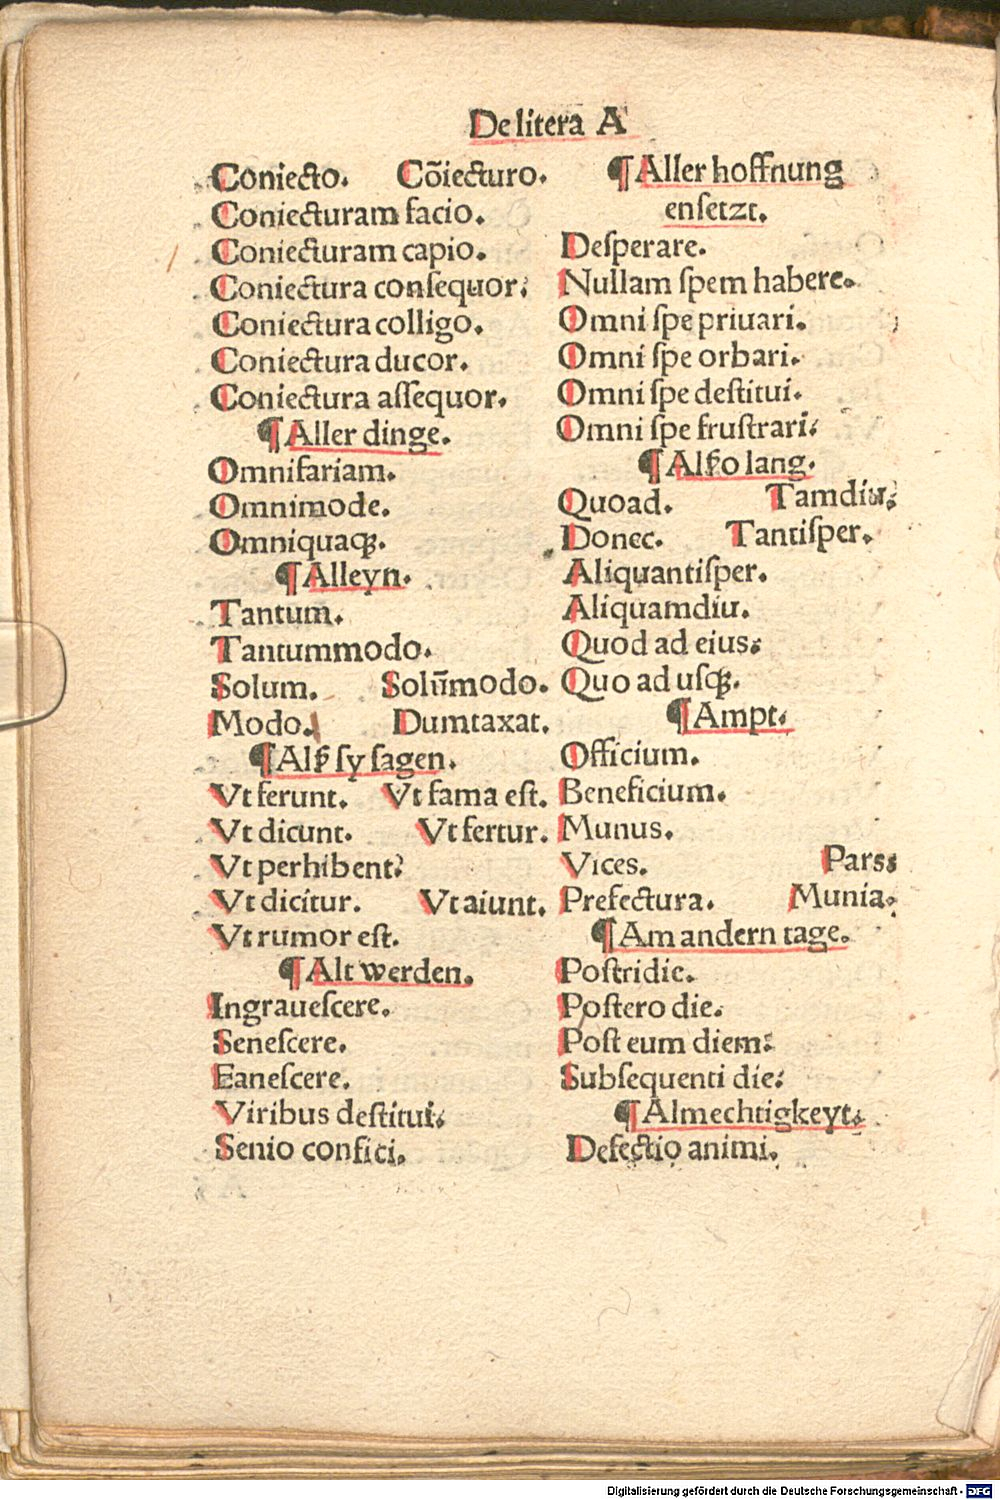 De litera A
Coniecto. Cõiecturo.
Coniecturam facio.
Coniecturam capio.
Coniectura conſequor.
Coniectura colligo.
Coniectura ducor.
Coniectura aſſequor.
¶ Aller dinge.
Omnifariam.
Omnimode.
Omniquaqꝫ.
¶ Alleyn.
Tantum.
Tantummodo.
Solum. Solũmodo.
Modo. Dumtaxat.
¶ Alß ſy ſagen.
Vt ferunt. Vt fama eſt.
Vt dicunt. Vt fertur.
Vt perhibent.
Vt dicitur. Vt aiunt.
Vt rumor eſt.
¶ Alt werden.
Ingraueſcere.
Seneſcere.
Eaneſcere.
Viribus deſtitui.
Senio confici.
¶ Aller hoffnung
enſetzt.
Deſperare.
Nullam ſpem habere.
Omni ſpe priuari.
Omni ſpe orbari.
Omni ſpe deſtitui.
Omni ſpe fruſtrari.
¶ Alßo lang.
Quoad. Tamdiu.
Donec. Tantiſper.
Aliquantiſper.
Aliquamdiu.
Quod ad eius.
Quo ad uſqꝫ.
¶ Ampt.
Officium.
Beneficium.
Munus.
Vices. Pars.
Prefectura. Munia.
¶ Am andern tage.
Poſtridie.
Poſtero die.
Poſt eum diem.
Subſequenti die.
¶ Almechtigkeyt.
Defectio animi.
Digitalisierung gefördert durch die Deutsche Forschungsgemeinschaft - DFG